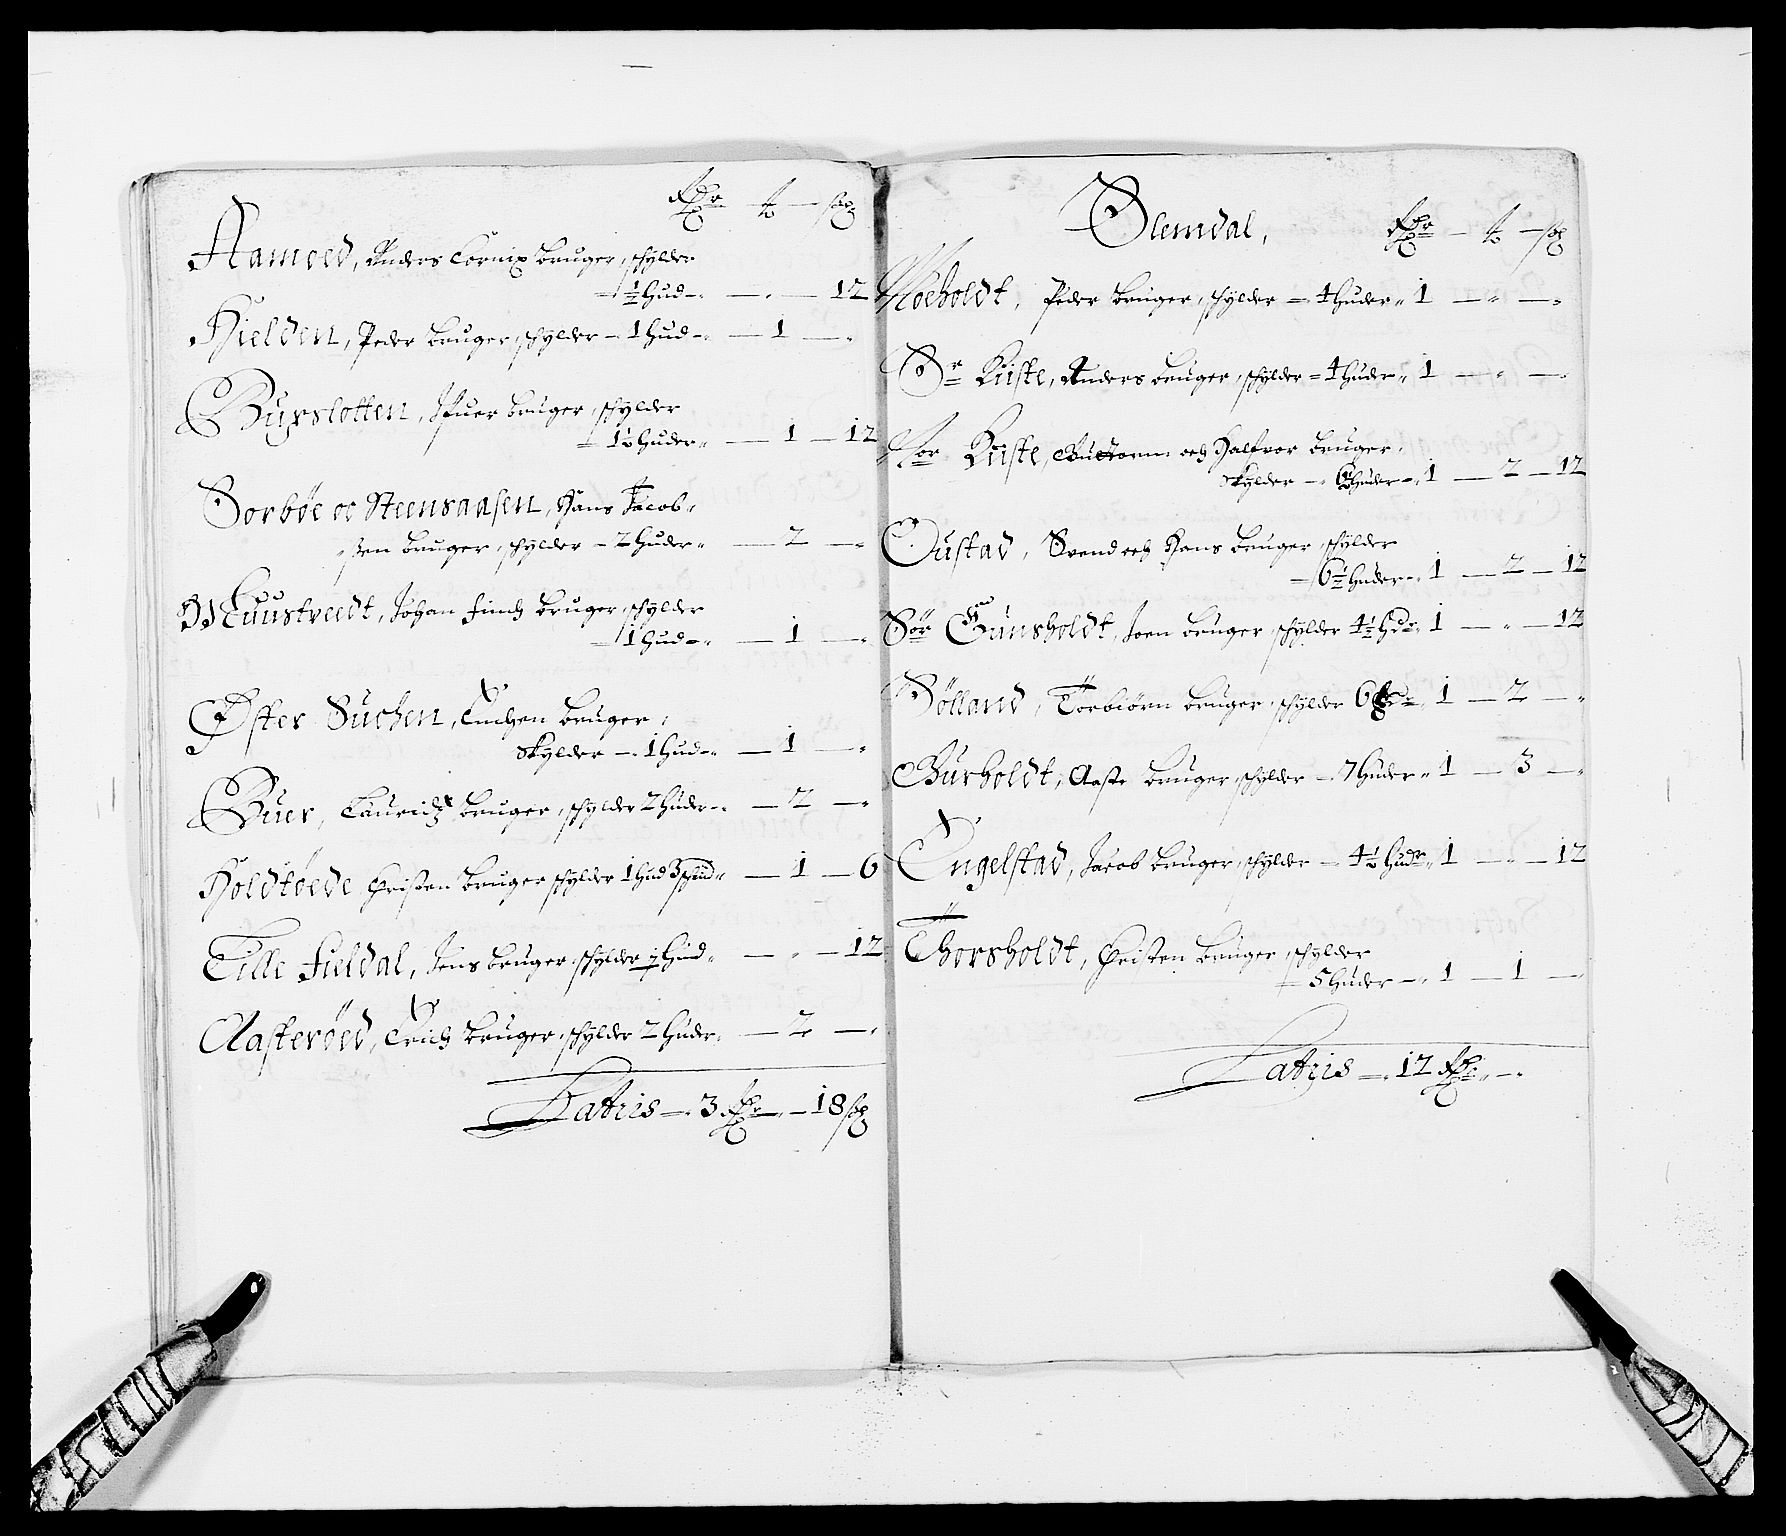 Rdr — ₺ — sk
Aamoed, Anders Cornix bruger, schylder
— ½ hud —. — . — 12
Kielden, Peder bruger, schylder — 1 hud —. — 1 — .
Buxslotten, Ifuer bruger, schylder
— 1½ huder. — 1 — 12
Sorböe oc Steensaasen, Hans Jacob-
sen bruger, schylder — 2 huder. — 2 — .
Kuustvedt, Johan Finch bruger, schylder
— 1 hud —. — 1 — .
Öster Suchen, bruger,
skylder — 1 hud —. — 1 — .
Buer, Lauridtz bruger, schylder 2 huder —. — 2 — .
Holdtöede Christen bruger schylder 1 hud 3 — 1 — 6
Lille Fieldal, Jens bruger, schylder ½ hud. — . — 12
Aasteröed, Erich bruger, schylder 2 huder. — 2 — .
Latus — 3 Rdr — 18 sk
Slemdal, Rdr — ₺ — sk
Moeholdt, Peder bruger, schylder — 4 huder. 1 — . — .
Sr Kiste, Anders bruger, schylder = 4 hudr. 1 — . — .
Nor Kiste, Guttorm och Halfvor bruger,
skylder — 6½ huder —. 1 — 2 — 12
Oustad, Svend och Hans bruger, schylder
— 6½ huder —. 1 — 2 — 12
Sör Gunsholdt, Joen bruger schylder 4½ hdr. 1 — . — 12
Sölland, Torbiörn bruger, schylder 6 1 — 2 — .
Burholdt, Aaste bruger, schylder — 7 huder. 1 — 3 — .
Engelstad, Jacob bruger, schylder — 4½ hudr. 1 — . — 12
Thorsholdt, Christen bruger, schylder
— 5 huder —. 1 — 1 — .
Latus — 12 Rdr. — .